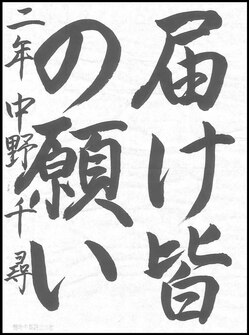 届け皆
の願い
二年 中野千尋